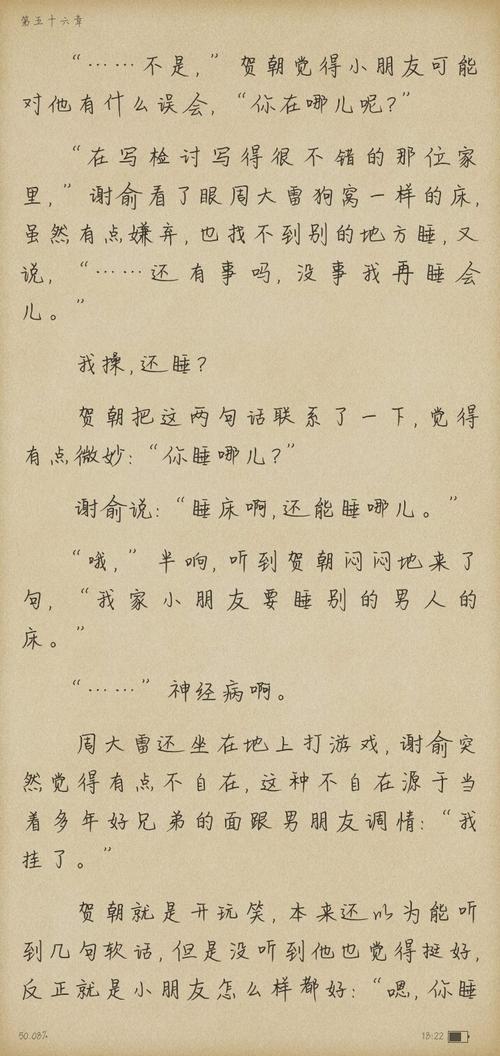 第五十六章
“……不是，”贺朝觉得小朋友可能
对他有什么误会，“你在哪儿呢？”
“在写检讨写得很不错的那位家
里，”谢俞看了眼周大雷狗窝一样的床，
虽然有点嫌弃，也找不到别的地方睡，又
说，“……还有事吗，没事我再睡会
儿。”
我操，还睡？
贺朝把这两句话联系了一下，觉得
有点微妙：“你睡哪儿？”
谢俞说：“睡床啊，还能睡哪儿。”
“哦，”半响，听到贺朝闷闷地来了
句，“我家小朋友要睡别的男人的
床。”
“……”神经病啊。
周大雷还坐在地上打游戏，谢俞突
然觉得有点不自在，这种不自在源于当
着多年好兄弟的面跟男朋友调情：“我
挂了。”
贺朝就是开玩笑，本来还以为能听
到几句软话，但是没听到他也觉得挺好，
反正就是小朋友怎么样都好：“嗯，你睡
50.08%
18:22